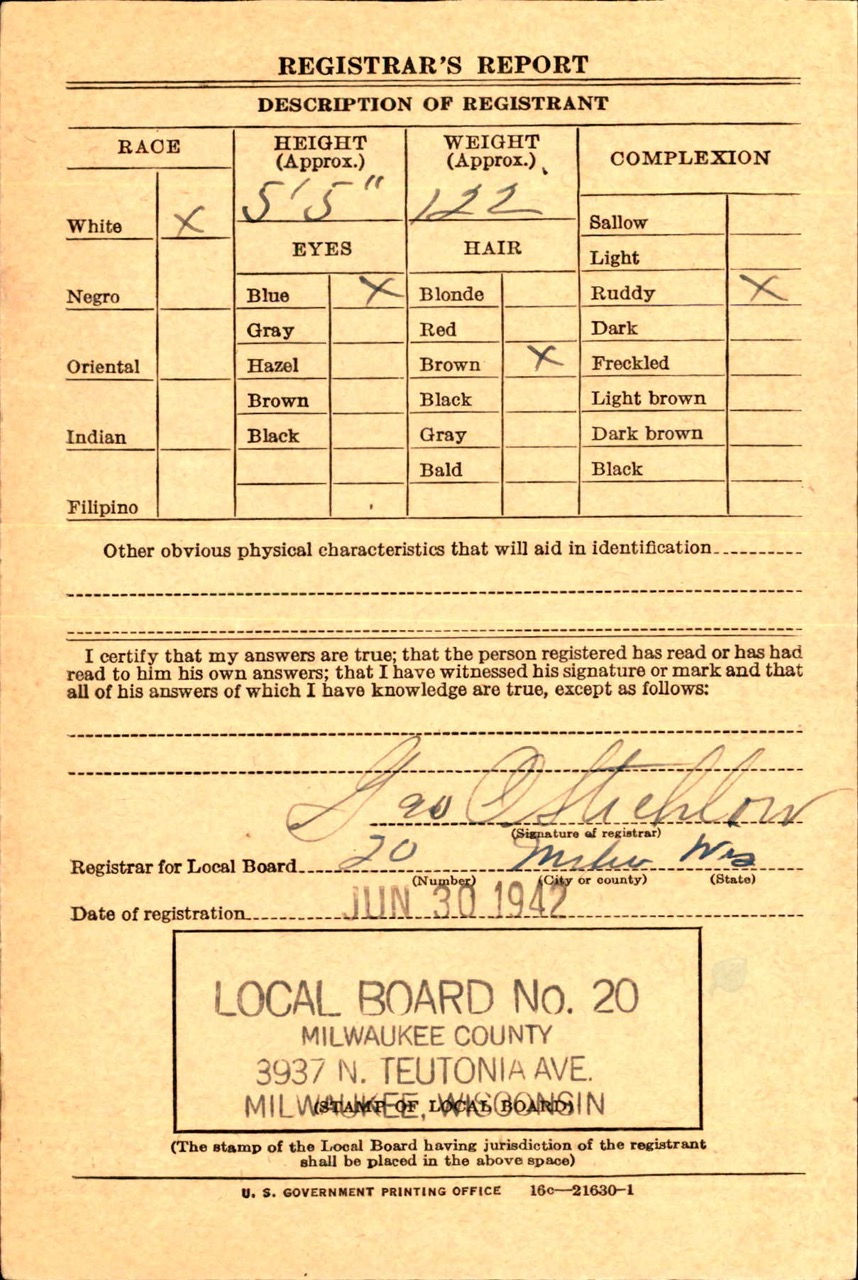 REGISTRAR'S REPORT
DESCRIPTION OF REGISTRANT
RACE
HEIGHT
(Approx.)
WEIGHT
(Approx.)
COMPLEXION
5'5"
122
White X
EYES
HAIR
Sallow
Light
Negro
Blue X
Blonde
Ruddy X
Gray
Red
Dark
Oriental
Hazel
Brown X
Freckled
Brown
Black
Light brown
Indian
Black
Gray
Dark brown
Bald
Black
Filipino
Other obvious physical characteristics that will aid in identification
I certify that my answers are true; that the person registered has read or has had
read to him his own answers; that I have witnessed his signature or mark and that
all of his answers of which I have knowledge are true, except as follows:
Geo Stiehlow
(Signature of registrar)
Registrar for Local Board 20 Milw Wis
(Number) (City or county) (State)
Date of registration JUN 30 1942
LOCAL BOARD No. 20
MILWAUKEE COUNTY
3937 N. TEUTONIA AVE.
MILWAUKEE, WISCONSIN
(STAMP OF LOCAL BOARD)
(The stamp of the Local Board having jurisdiction of the registrant
shall be placed in the above space)
U. S. GOVERNMENT PRINTING OFFICE 16c—21630-1